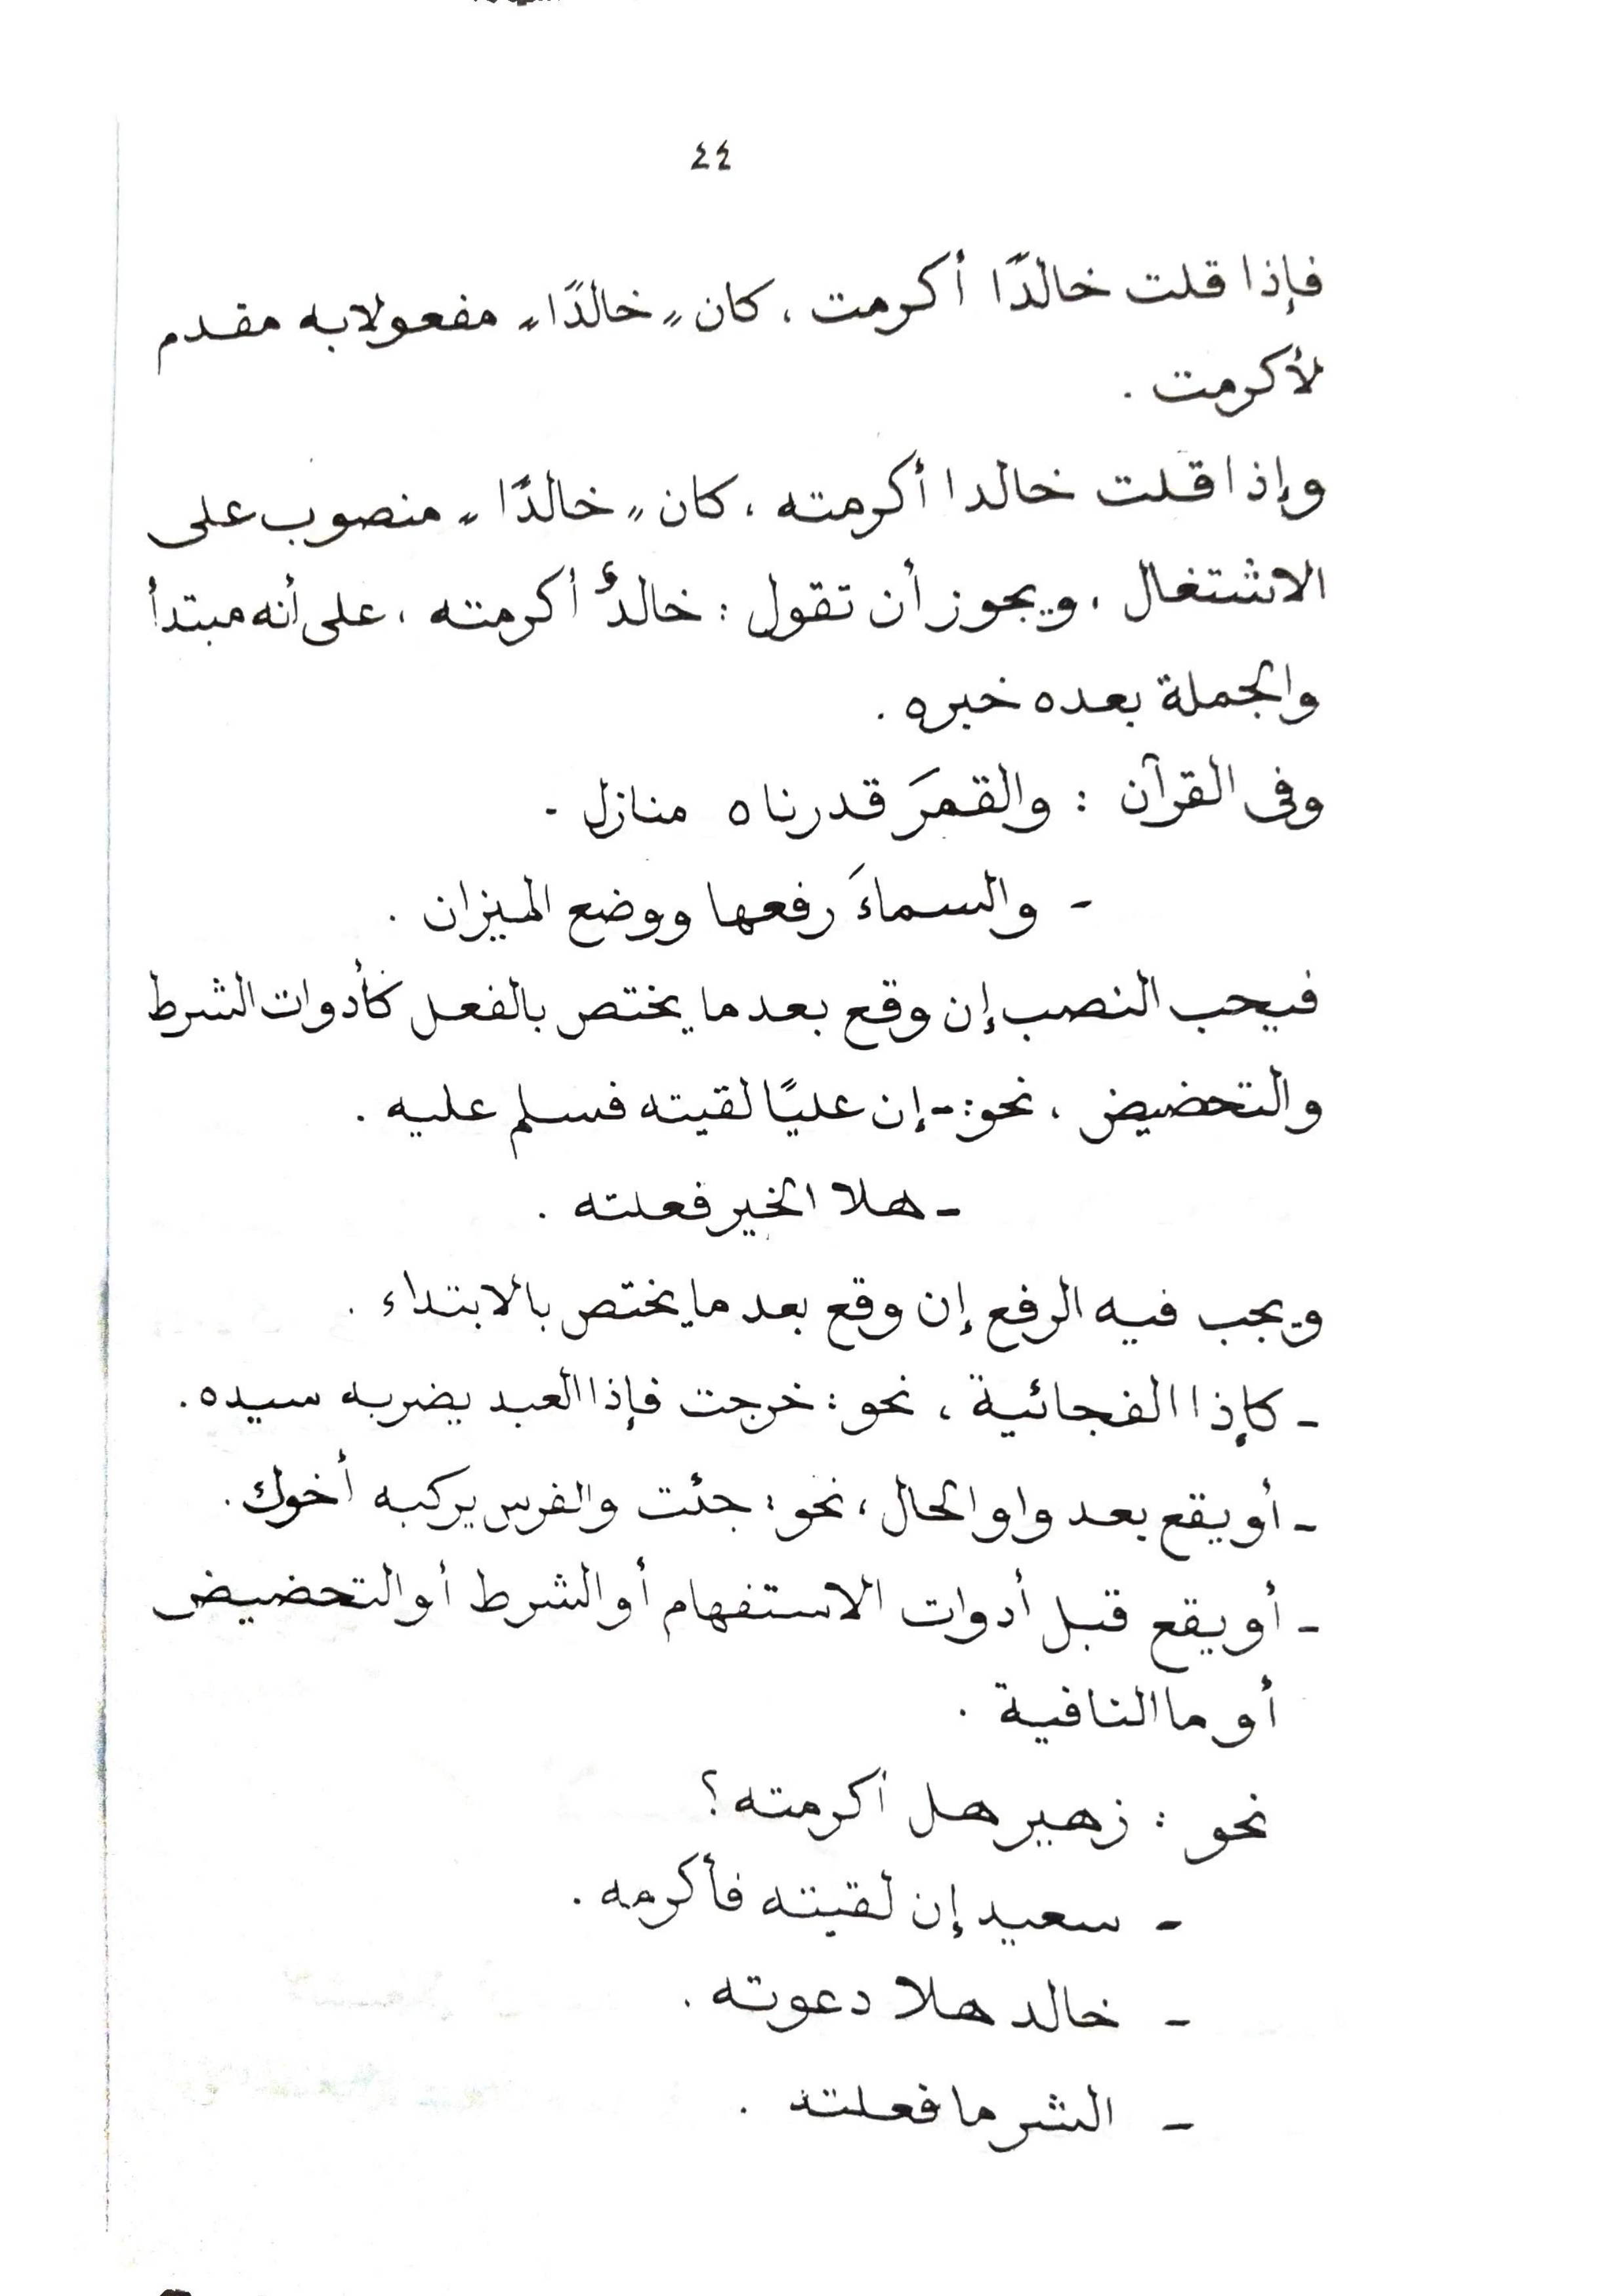 ٤٤
فإذا قلت خالدًا أكرمت ، كان „ خالدًا „ مفعولا به مقدم
لأكرمت .
وإذا قلت خالدا أكرمته ، كان „ خالدًا „ منصوب على
الاشتغال ، ويجوز أن تقول : خالدٌ أكرمته ، على أنه مبتدأ
والجملة بعده خبره .
وفى القرآن : والقمرَ قدرناه منازل -
- والسماءَ رفعها ووضع الميزان .
فيحب النصب إن وقع بعد ما يختص بالفعل كأدوات الشرط
والتحضيض ، نحو :- إن عليًا لقيته فسلم عليه .
- هلا الخير فعلته .
ويجب فيه الرفع إن وقع بعد ما يختص بالابتداء .
- كإذا الفجائية ، نحو : خرجت فإذا العبد يضربه سيده .
- أو يقع بعد واو الحال ، نحو : جئت والفرس يركبه أخوك .
- أو يقع قبل أدوات الاستفهام أو الشرط أو التحضيض
أو ما النافية .
نحو : زهير هل أكرمته ؟
- سعيد إن لقيته فأكرمه .
- خالد هلا دعوته .
- الشر ما فعلته .